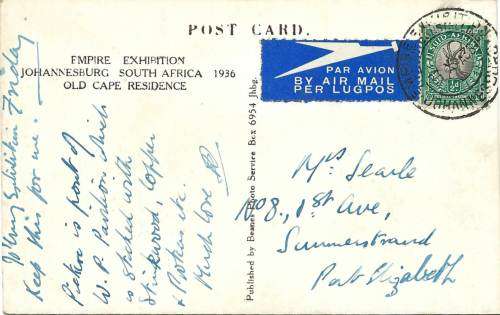 POST CARD.
EMPIRE EXHIBITION
JOHANNESBURG SOUTH AFRICA 1936
OLD CAPE RESIDENCE
PAR AVION
BY AIR MAIL
PER LUGPOS
Published by Beanes Photo Service Box 6954 Jhbg.
Exhibition Friday
Keep this for me.
Picture is front of
W. P. Pavilion which
is stocked with
Stinkwood, Copper
Much Love
Mrs Searle
No 8., 1st Ave,
Summerstrand
Port Elizabeth